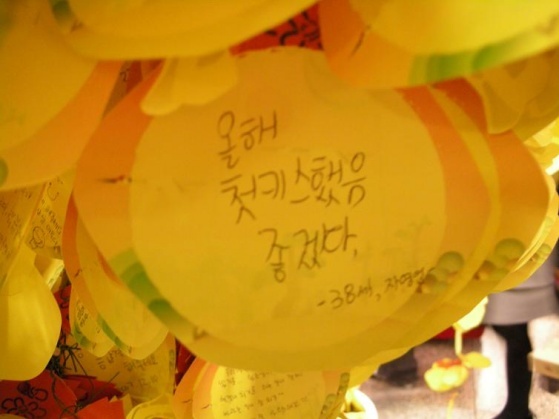 올해
첫키스했음
좋겠다.
-38세, 자영업